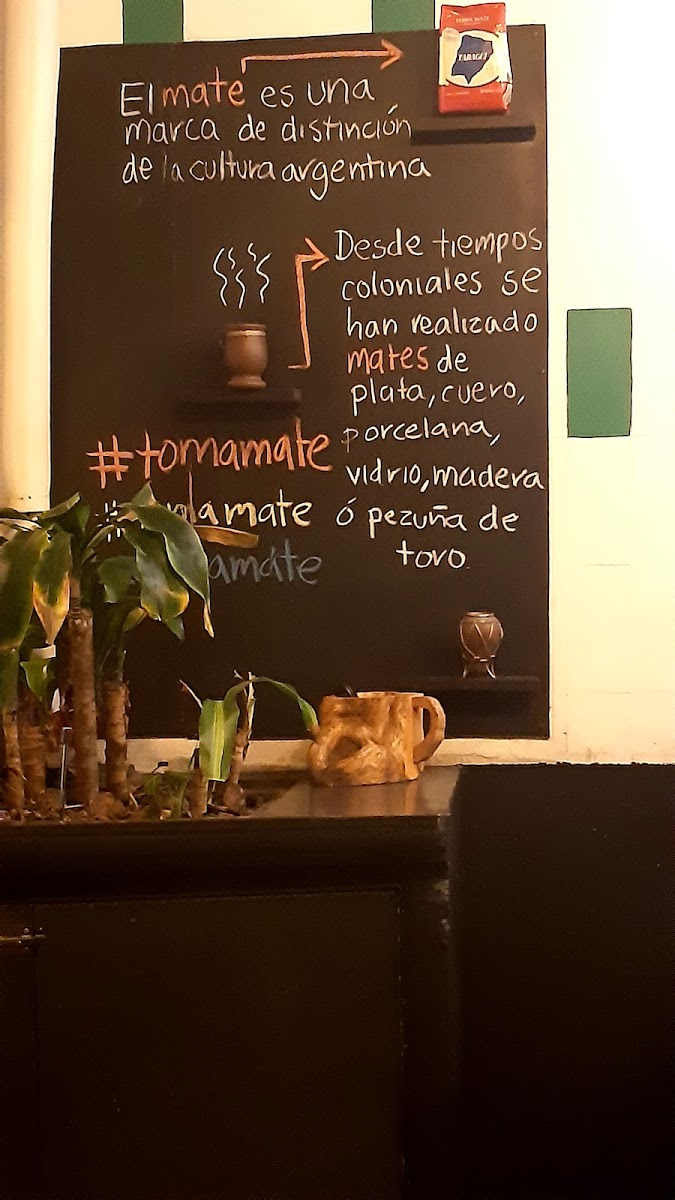 El mate es una
marca de distinción
de la cultura argentina
TARAGÜI
Desde tiempos
coloniales se
han realizado
mates de
plata, cuero,
porcelana,
vidrio, madera
ó pezuña de
toro.
#tomamate